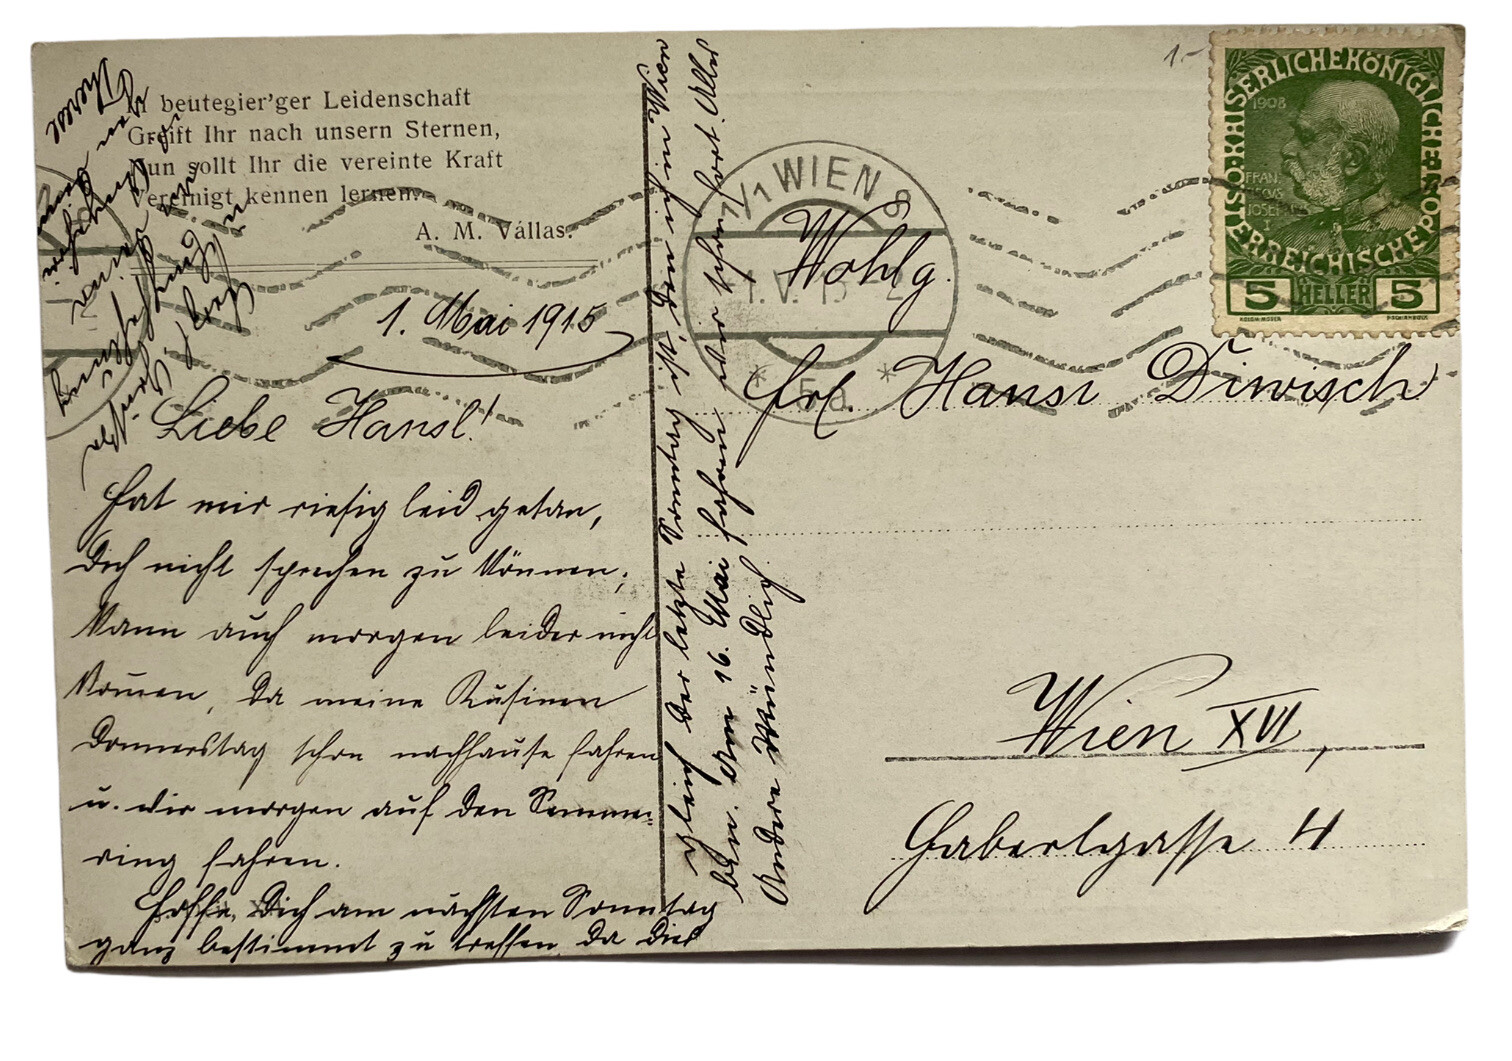 In beutegier'ger Leidenschaft
Greift Ihr nach unsern Sternen,
Nun sollt Ihr die vereinte Kraft
Vereinigt kennen lernen.
A. M. Vállas.
1. Mai 1915
Liebe Hansl!
Hat mir riesig leid getan,
Dich nicht sprechen zu können;
kann auch morgen leider nicht
kom̄en, da meine Kusinen
Donnerstag schon nachhause fahren
u. wir morgen auf den Semme-
ring fahren.
Hoffe, Dich am nächsten Sonntag
ganz bestimmt zu treffen, da dies
gleich der letzte Sonntag ist, den ich in Wien
bin. Am 16. Mai fahren wir schon fort. Alles
Andere mündlich
1/1 WIEN 8
1. V. 15
* 5d *
1.-
KAISERLICHE KÖNIGLICHE ÖSTERREICHISCHE POST
1908
FRANCISCVS JOSEPHVS I
5 HELLER 5
Wohlg.
Frl. Hansi Diwisch
Wien XVI,
Gablergasse 4